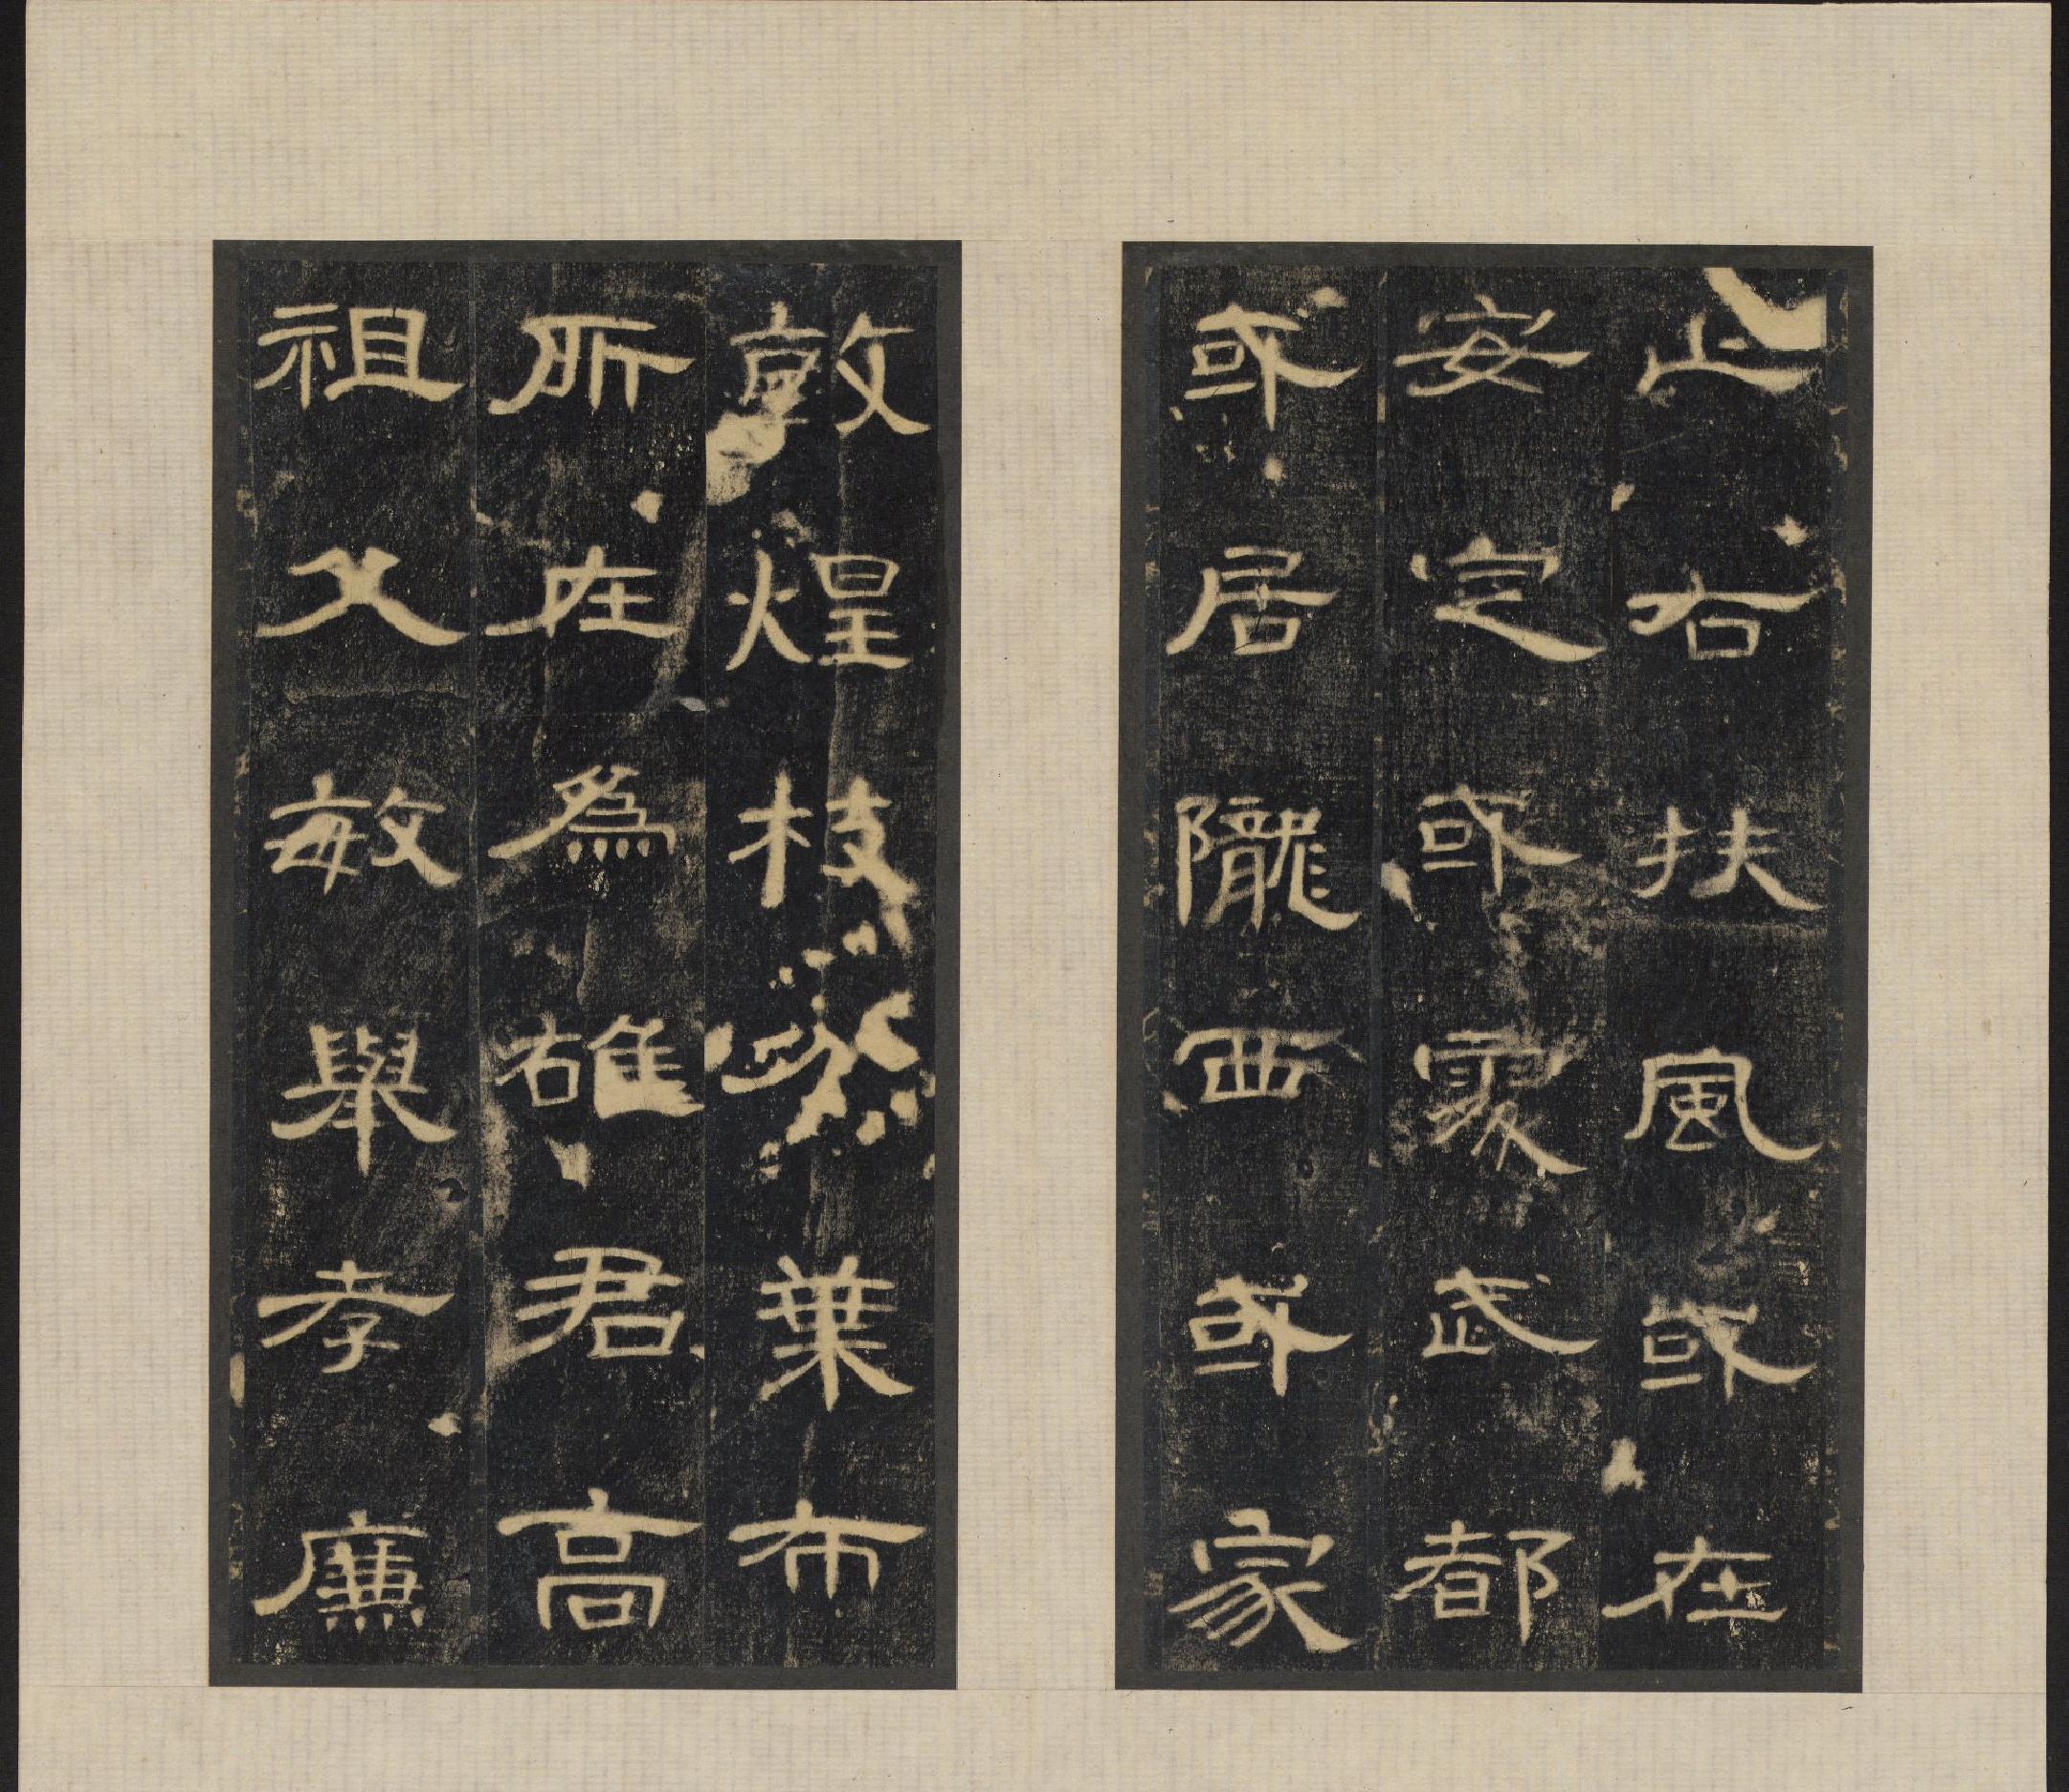 止右扶風或在
安定或處武都
或居隴西或家
敦煌枝分葉布
所在為雄君高
祖父敏舉孝廉